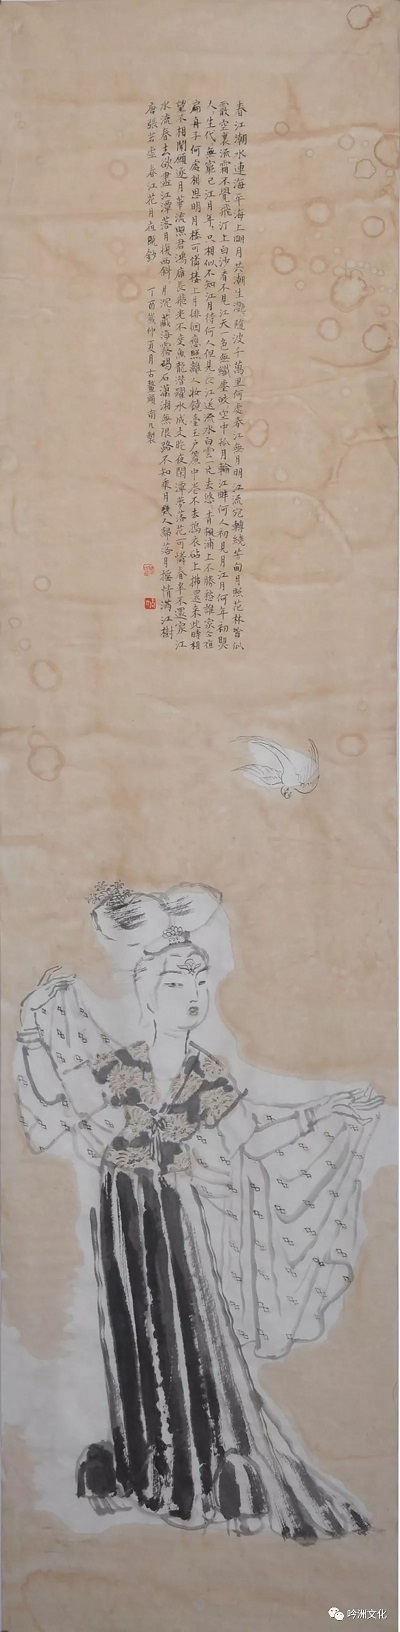 春江潮水連海平海上明月共潮生灔々随波千萬里何處春江無月明江流宛轉繞芳甸月照花林皆似
霰空裏流霜不覺飛汀上白沙看不見江天一色無纖塵皎々空中孤月輪江畔何人初見月江月何年初照
人人生代々無窮已江月年々只相似不知江月待何人但見長江送流水白雲一片去悠々青楓浦上不勝愁誰家今夜
扁舟子何處相思明月樓可憐樓上月徘徊應照離人妝鏡臺玉户簾中卷不去搗衣砧上拂還來此時相
望不相聞願逐月華流照君鴻雁長飛光不度魚龍潛躍水成文昨夜閒潭夢落花可憐春半不還家江
水流春去欲盡江潭落月復西斜斜月沉々藏海霧碣石瀟湘無限路不知乘月幾人歸落月摇情滿江樹
唐張若虛春江花月夜 鈔 丁酉歲仲夏月古鰲頭 製
吟洲文化